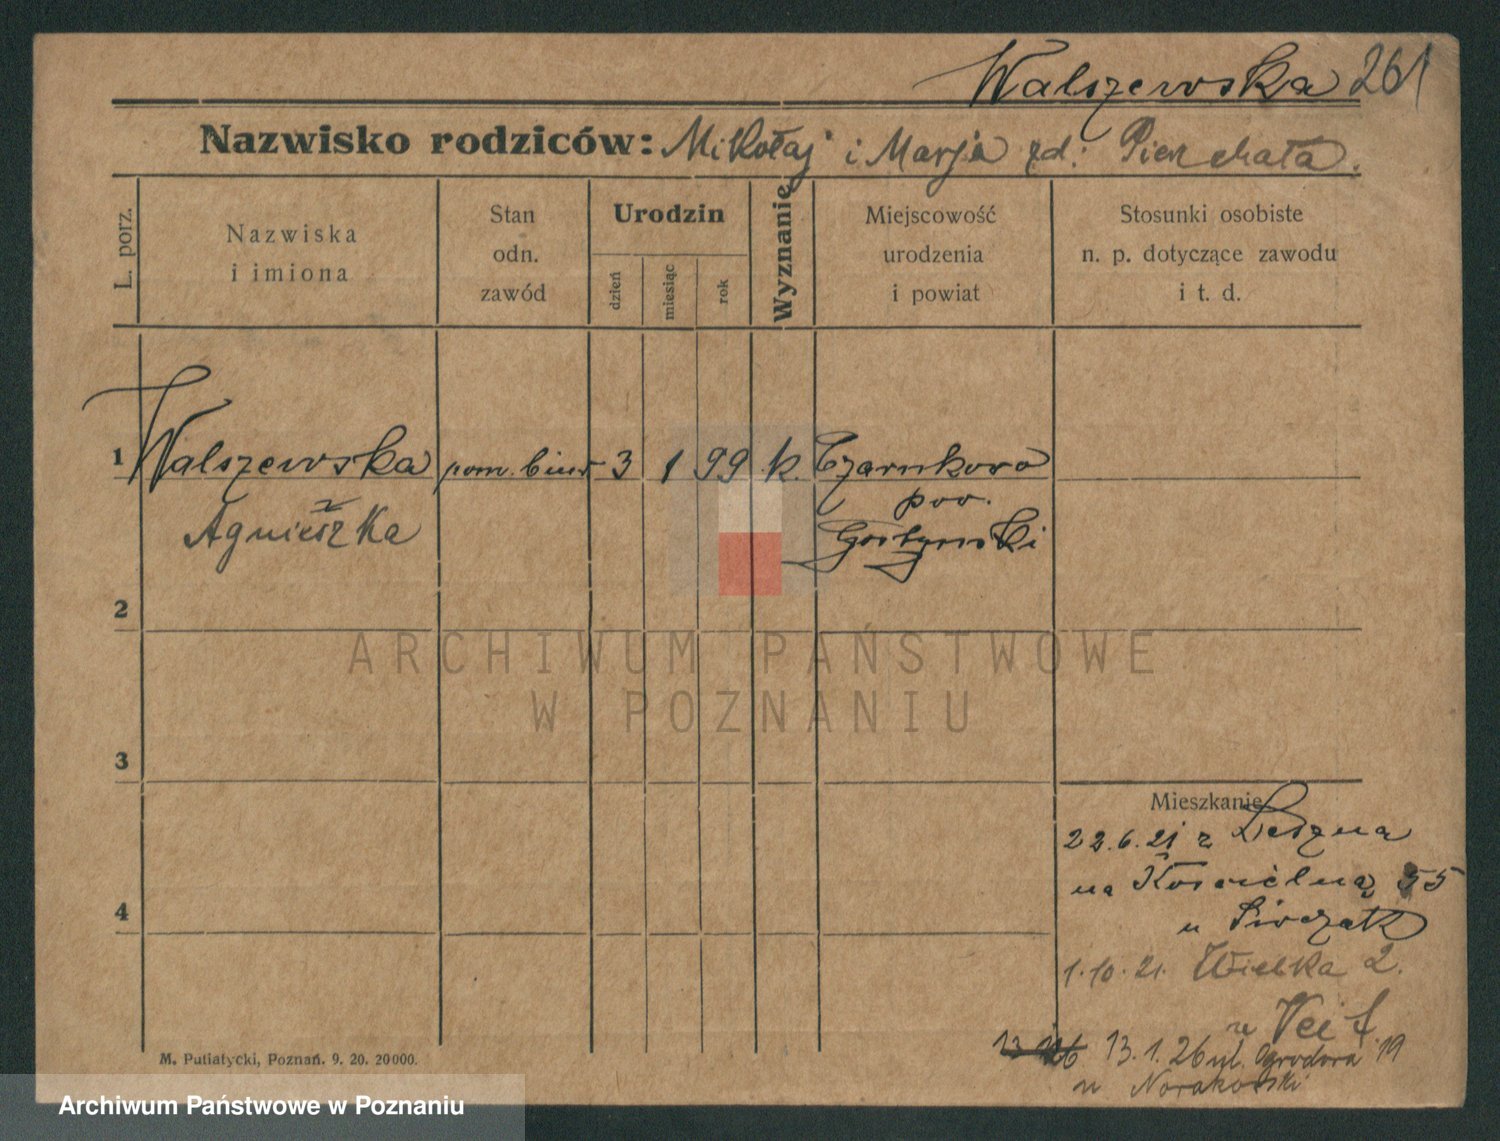 Walszewska 261
Nazwisko rodziców: Mikołaj i Marja zd: Pierzchała.
L. porz.
Nazwiska
i imiona
Stan
odn.
zawód
Urodzin
dzień
miesiąc
rok
Wyznanie
Miejscowość
urodzenia
i powiat
Stosunki osobiste
n. p. dotyczące zawodu
i t. d.
1 Walszewska pom. biur 3 1 99 k. Czarnkowo
Agnieszka pow.
Gostyński
2
3
4
ARCHIWUM PAŃSTWOWE
W POZNANIU
Mieszkanie
22.6.21 z Leszna
na Kościelną 55
u
1.10.21. Wielka 2.
u
13.1.26 ul. Ogrodowa 19
u Nowakowski
M. Putiatycki, Poznań. 9. 20. 20000.
Archiwum Państwowe w Poznaniu